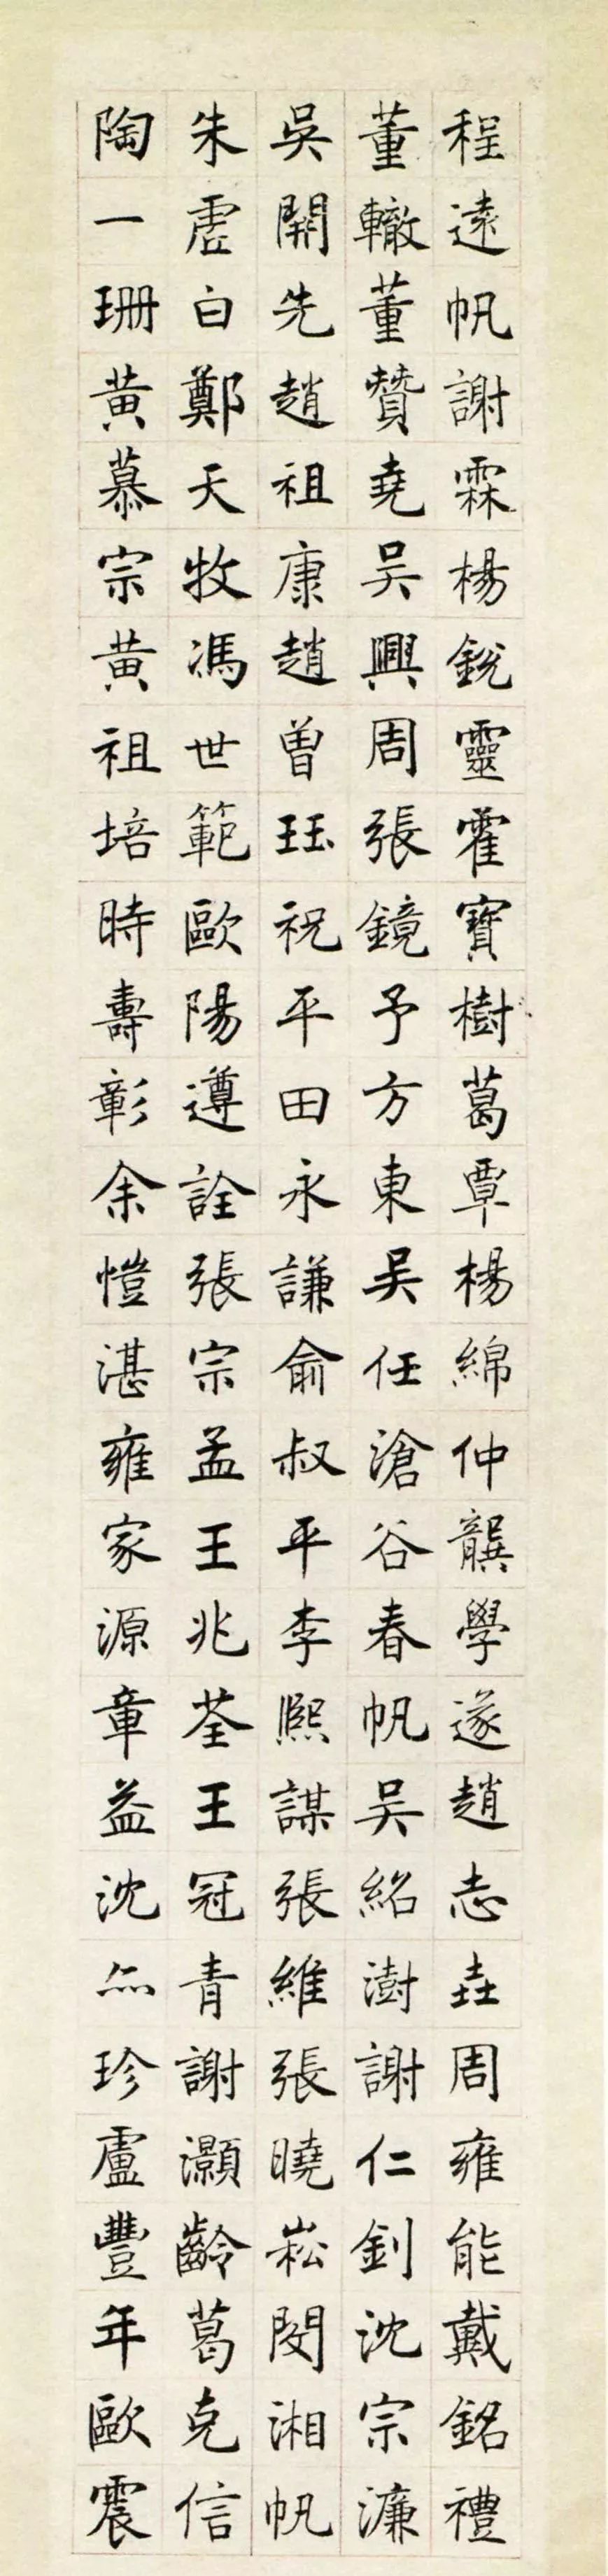 程遠帆謝霖楊銳靈霍寶樹葛覃楊綿仲龔學遂趙志垚周雍能戴銘禮
董轍董贊堯吳興周張鏡予方東吳任滄谷春帆吳紹澍謝仁釗沈宗濂
吳開先趙祖康趙曾珏祝平田永謙俞叔平李熙謀張維張曉崧閔湘帆
朱虛白鄭天牧馮世範歐陽遵詮張宗孟王兆荃王冠青謝灝齡葛克信
陶一珊黃慕宗黃祖培時壽彰余愷湛雍家源章益沈珍盧豐年歐震